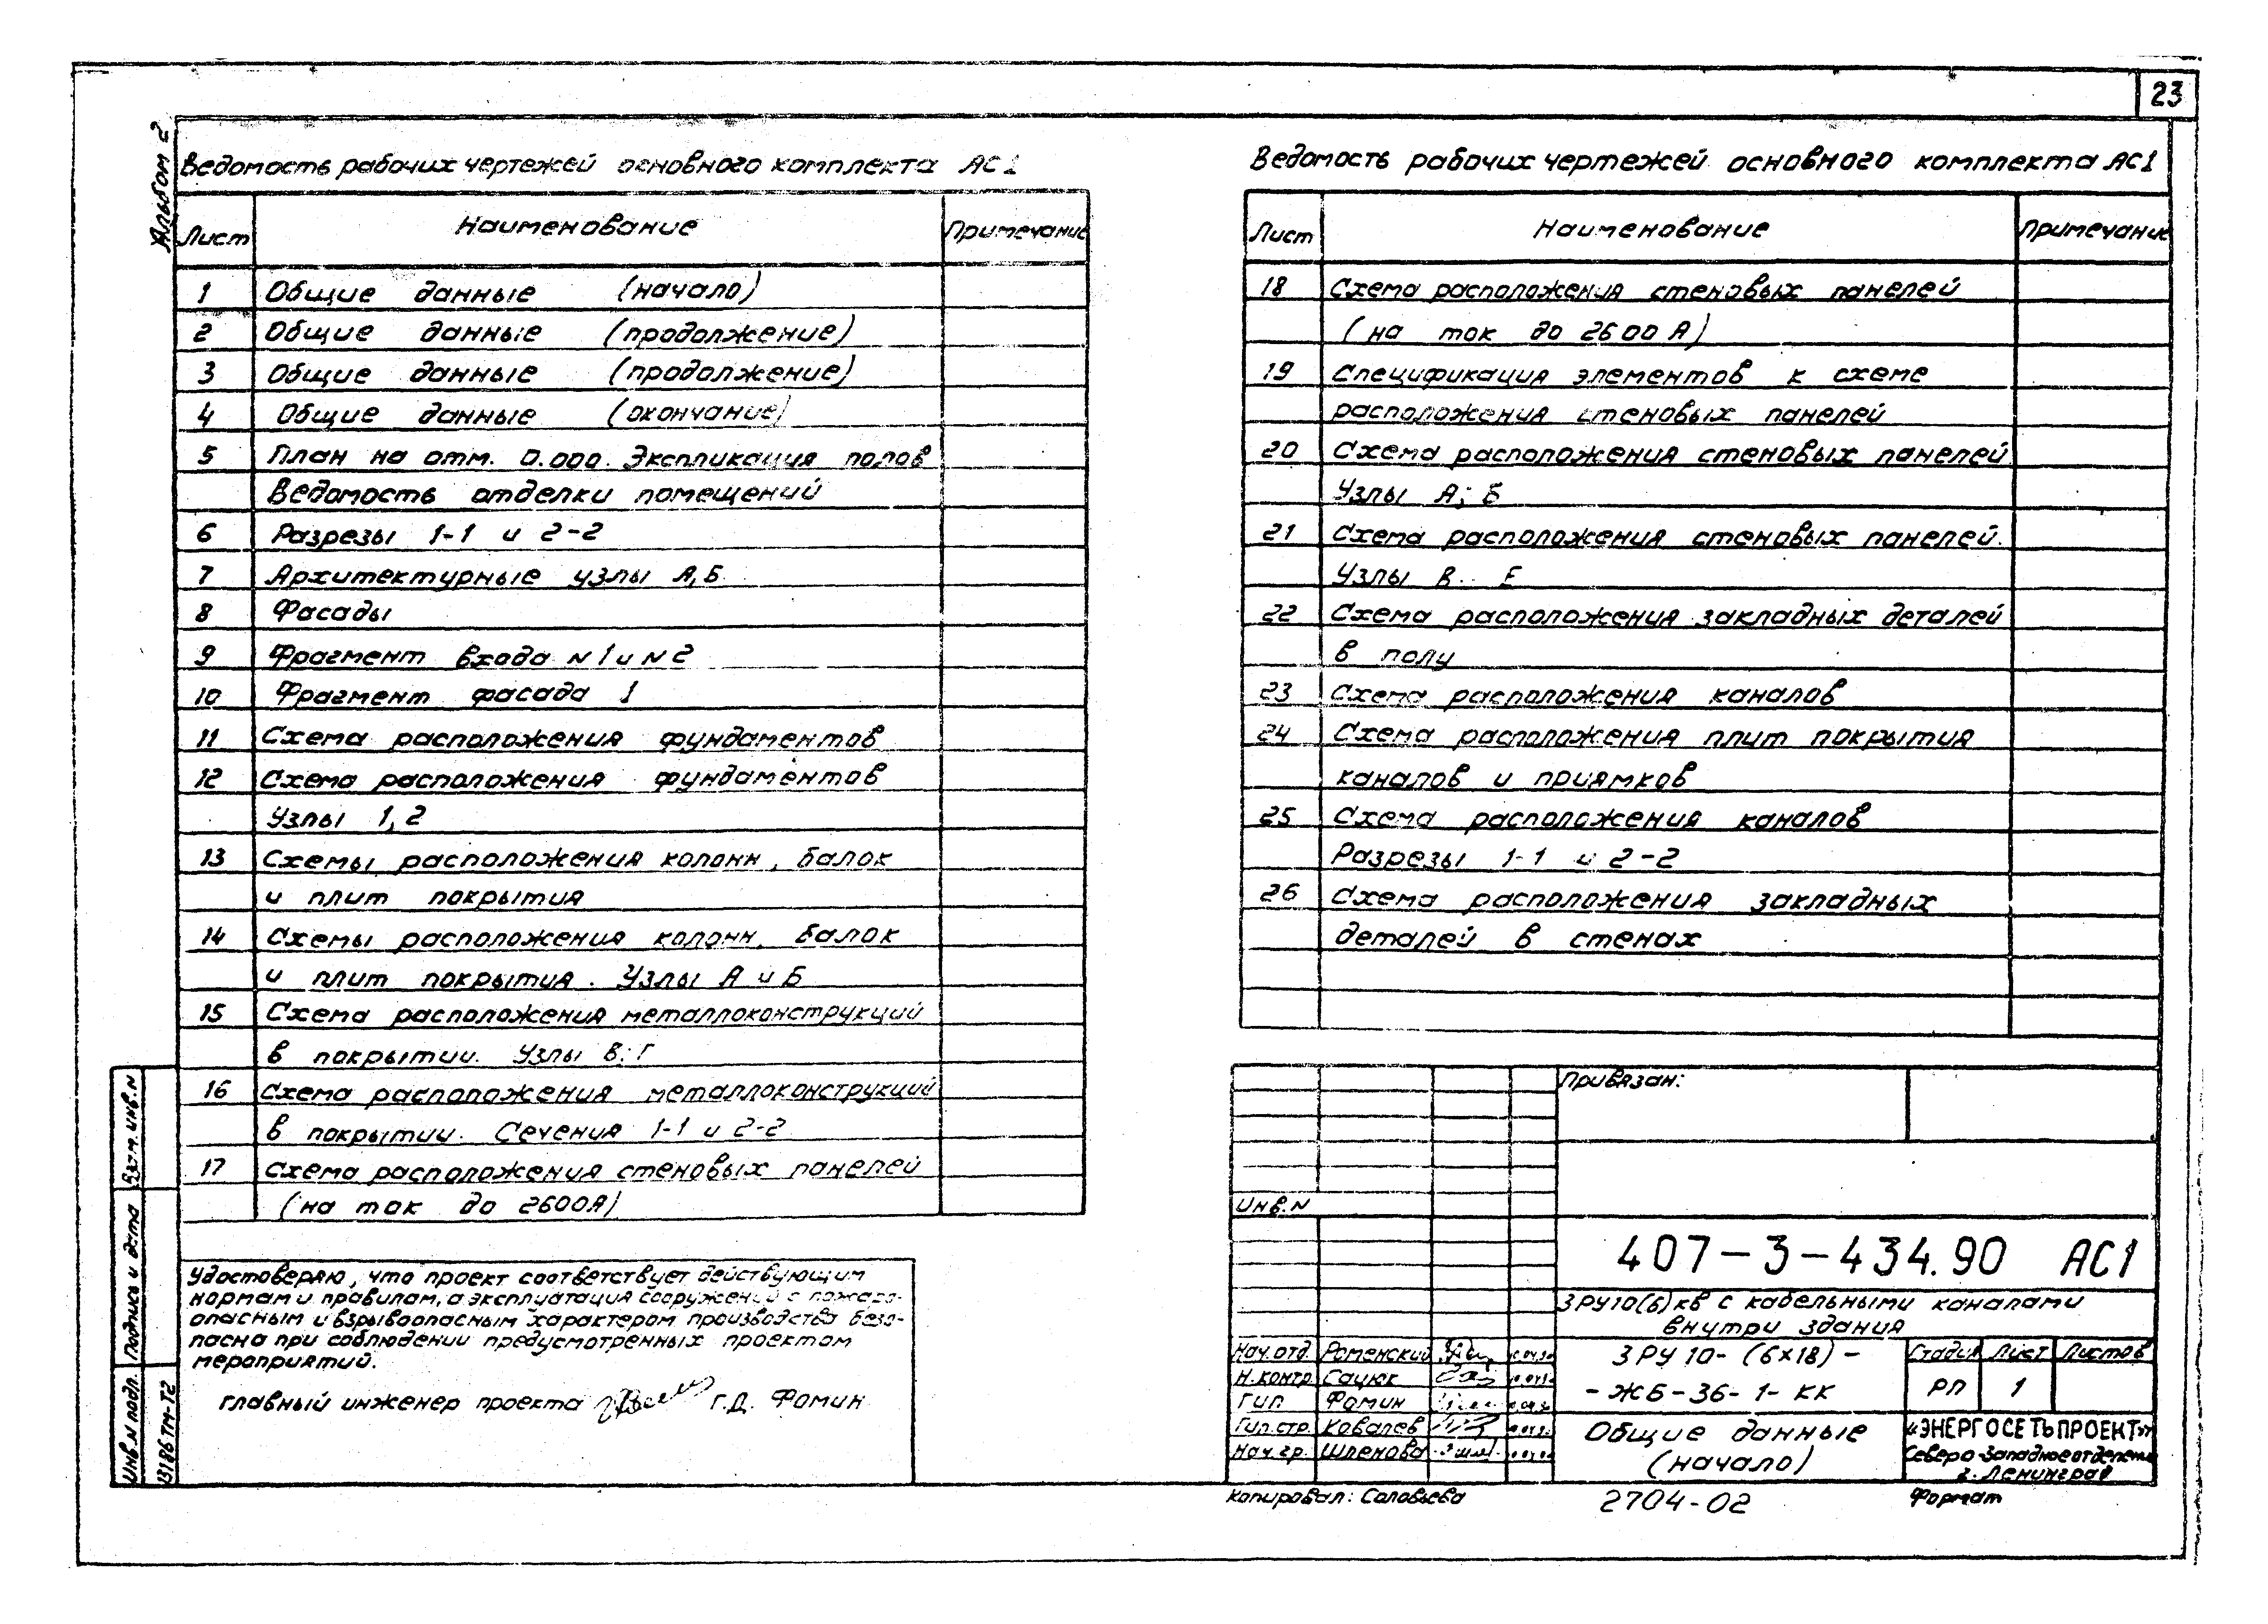 23
Альбом 2
Ведомость рабочих чертежей основного комплекта АС1
Лист Наименование Примечание
1 Общие данные (начало)
2 Общие данные (продолжение)
3 Общие данные (продолжение)
4 Общие данные (окончание)
5 План на отм. 0.000. Экспликация полов
Ведомость отделки помещений
6 Разрезы 1-1 и 2-2
7 Архитектурные узлы А,Б
8 Фасады
9 Фрагмент входа N1 и N2
10 Фрагмент фасада 1
11 Схема расположения фундаментов
12 Схема расположения фундаментов
Узлы 1,2
13 Схемы расположения колонн, балок
и плит покрытия
14 Схемы расположения колонн, балок
и плит покрытия. Узлы А и Б
15 Схема расположения металлоконструкций
в покрытии. Узлы В; Г
16 Схема расположения металлоконструкций
в покрытии. Сечения 1-1 и 2-2
17 Схема расположения стеновых панелей
(на ток до 2600А)
Удостоверяю, что проект соответствует действующим
нормам и правилам, а эксплуатация сооружений с пожаро-
опасным и взрывоопасным характером производства безо-
пасна при соблюдении предусмотренных проектом
мероприятий.
главный инженер проекта Г.Д. Фомин
Ведомость рабочих чертежей основного комплекта АС1
Лист Наименование Примечание
18 Схема расположения стеновых панелей
(на ток до 2600 А)
19 Спецификация элементов к схеме
расположения стеновых панелей
20 Схема расположения стеновых панелей
Узлы А; Б
21 Схема расположения стеновых панелей.
Узлы В.. Е
22 Схема расположения закладных деталей
в полу
23 Схема расположения каналов
24 Схема расположения плит покрытия
каналов и приямков
25 Схема расположения каналов
Разрезы 1-1 и 2-2
26 Схема расположения закладных
деталей в стенах
Привязан:
Инв.N
407-3-434.90 АС1
ЗРУ10(6)кВ с кабельными каналами
внутри здания
Нач.отд. Роменский
Н.контр Сацюк
Гип Фомин
Гип.стр. Ковалев
Нач.гр. Шленова
ЗРУ 10-(6х18)-
-ЖБ-36-1-КК
Стадия Лист Листов
РП 1
Общие данные
(начало)
«ЭНЕРГОСЕТЬПРОЕКТ»
Северо-Западное отделение
г. Ленинград
Копировал: Соловьева
2704-02
Формат
Взам. инв. N
Подпись и дата
Инв. N подл.
13186ТМ-Т2